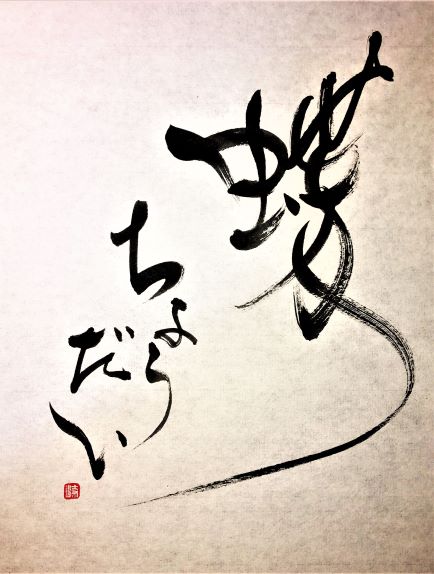 蝶
ちょう
だい